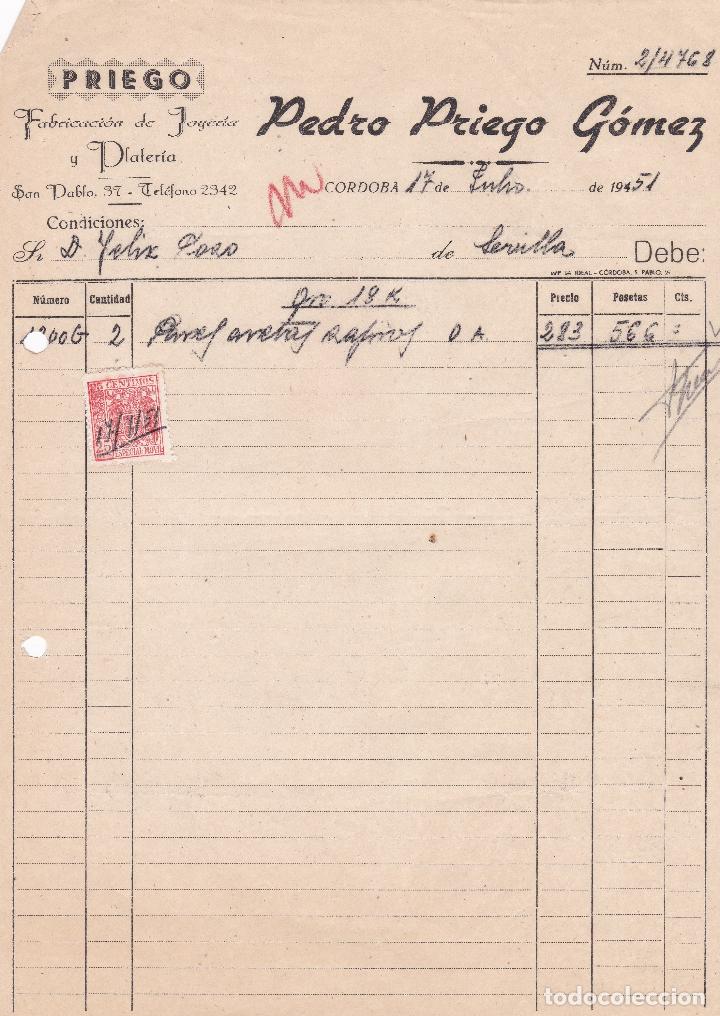 PRIEGO
Núm. 2/4768
Fabricación de Joyería
y Platería
Pedro Priego Gómez
San Pablo, 37 - Teléfono 2342
CORDOBA 17 de Julio de 19451
Condiciones:
Sr. D. Felix Pozo de Sevilla Debe:
IMP. LA IDEAL - CÓRDOBA, S. PABLO,
Número Cantidad Oro 18 K Precio Pesetas Cts.
00G 2 Pares aretes zafiros O A 283 566 =
25 CENTIMOS
17/7/51
25 ESPECIAL MOVIL
todocoleccion